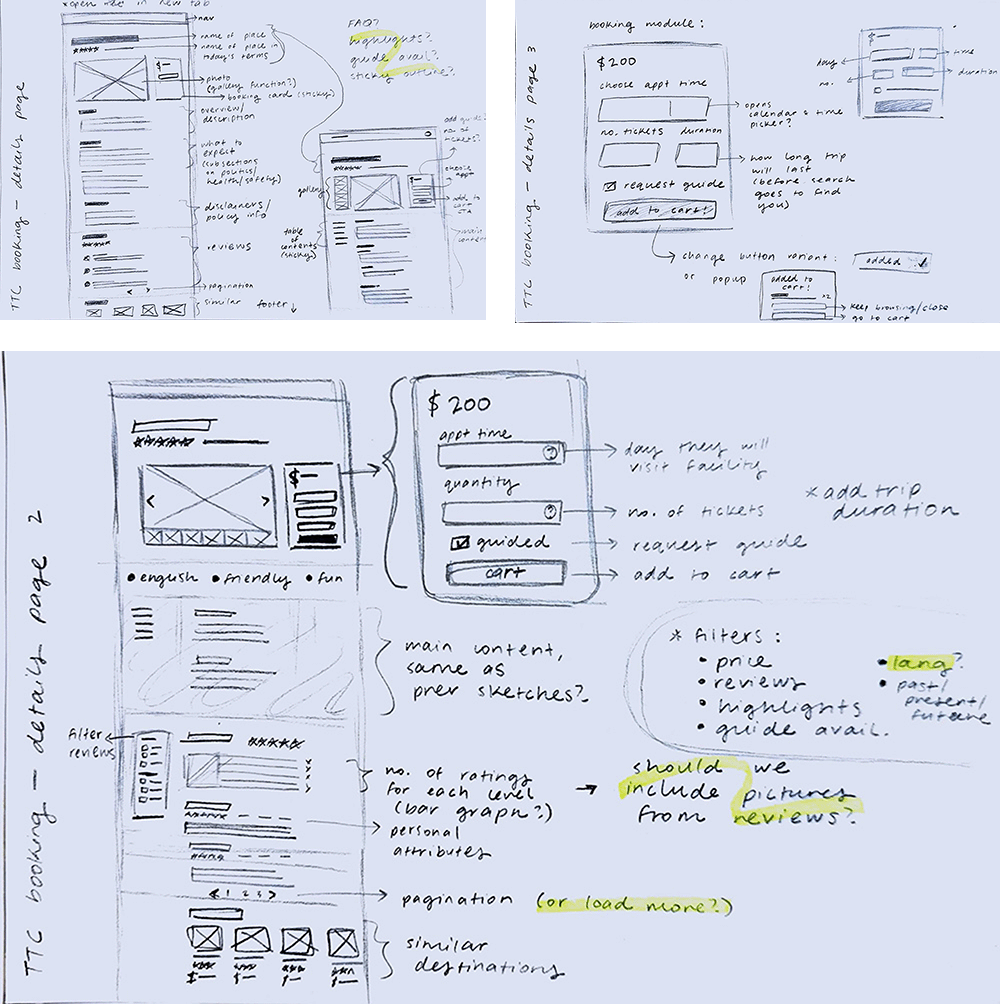 *open in new tab
TTC booking – details page
nav
name of place
name of place in
today's terms
photo
(gallery function?)
booking card (sticky)
overview/
description
what to
expect
(subsections
on politics/
health/safety)
disclaimers/
policy info
reviews
pagination
similar
footer ↓
FAQ?
highlights?
guide avail?
sticky outline?
$–
gallery
table of
contents
(sticky)
add guide
no. of
tickets?
choose
appt
add to
cart
CTA
main
content
TTC booking – details page 3
booking module:
$200
choose appt time
no. tickets duration
request guide
add to cart!
opens
calendar & time
picker?
how long trip
will last
(before search
goes to find
you)
change button variant:
added ✓
or popup
added to
cart!
x2
keep browsing/close
go to cart
$–
day
time
no.
duration
TTC booking – details page 2
$–
$200
appt time
?
quantity
?
guided
cart
day they will
visit facility
no. of tickets
request guide
add to cart
*add trip
duration
• english • friendly • fun
main content,
same as
prev sketches?
* filters:
• price
• reviews
• highlights
• guide avail.
• lang?
• past/
present/
future
filter
reviews
no. of ratings
for each level
(bar graph?)
→ should we
include pictures
from reviews?
personal
attributes
< 1 2 3 >
pagination (or load more?)
similar
destinations
$– $– $– $–